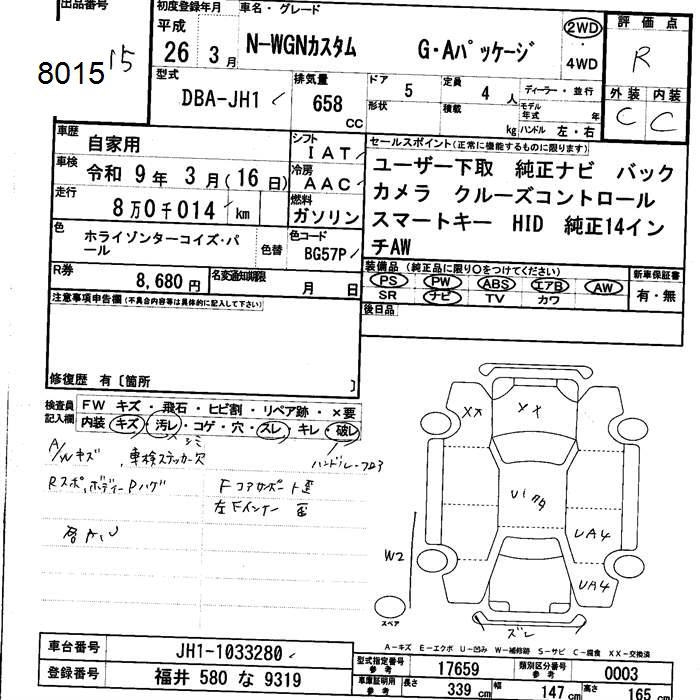 出品番号
8015
15
初度登録年月
平成
26 3月
車名・グレード
N-WGNカスタム G・Aパッケージ
2WD
・
4WD
評価点
R
外装 内装
C C
型式
DBA-JH1
排気量
658 cc
ドア 5
形状
定員 4 人
積載 kg
ディーラー・並行
モデル年式 年
ハンドル 左・右
車歴 自家用
シフト IAT
車検 令和 9年 3月(16日)
冷房 AAC
走行 8万0千014 km
燃料 ガソリン
色 ホライゾンターコイズ・パール
色替
色コード BG57P
R券 8,680円
名変通知期限 月 日
セールスポイント(正常に機能するものに限ります)
ユーザー下取 純正ナビ バック
カメラ クルーズコントロール
スマートキー HID 純正14イン
チAW
装備品(純正品に限り○をつけてください)
PS PW ABS エアB AW
SR ナビ TV カワ
新車保証書
有・無
後日品
注意事項申告欄(不具合内容等は具体的に記入して下さい)
修復歴 有〔箇所 〕
検査員記入欄
FW キズ・飛石・ヒビ割・リペア跡・×要
内装 キズ・汚レ・コゲ・穴・スレ・キレ・破レ
シミ
A/Wキズ 車検ステッカー欠
Rスポ,ボディーPハゲ
Fコアサポート歪
左Fインナー 歪
XX
XX
W2
UA4
UA4
スペア
スレ
A-キズ E-エクボ U-凹み W-補修跡 S-サビ C-腐食 XX-交換済
車台番号 JH1-1033280
登録番号 福井 580 な 9319
型式指定番号 参考 17659
類別区分番号 参考 0003
車庫証明用 参考 長さ 339 cm 幅 147 cm 高さ 165 cm